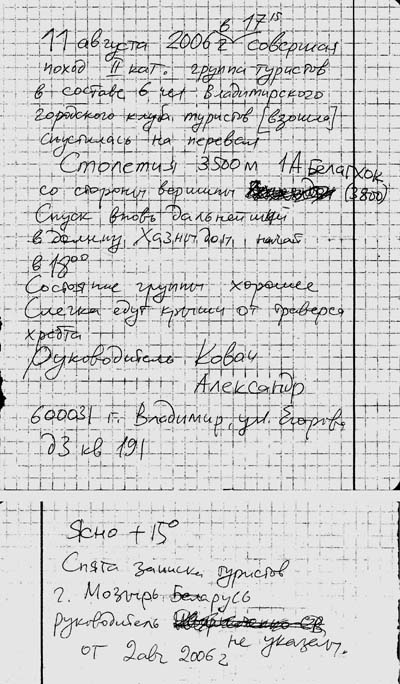 11 августа 2006 г в 17 15 совершая
поход II кат. группа туристов
в составе 6 чел Владимирского
городского клуба туристов [взошла]
спустилась на перевал
Столетия 3500м 1А Белагкок
со стороны вершины (3800)
Спуск вновь дальнейший
в долину Хазныдон начат
в 18 00
Состояние группы хорошее
Слегка едут крыши от траверса
хребта
Руководитель Ковач
Александр
600031 г. Владимир, ул. Егорова
д3 кв 191
Ясно +15°
Снята записка туристов
г. Мозырь Беларусь
руководитель не указан.
от 2авг 2006 г